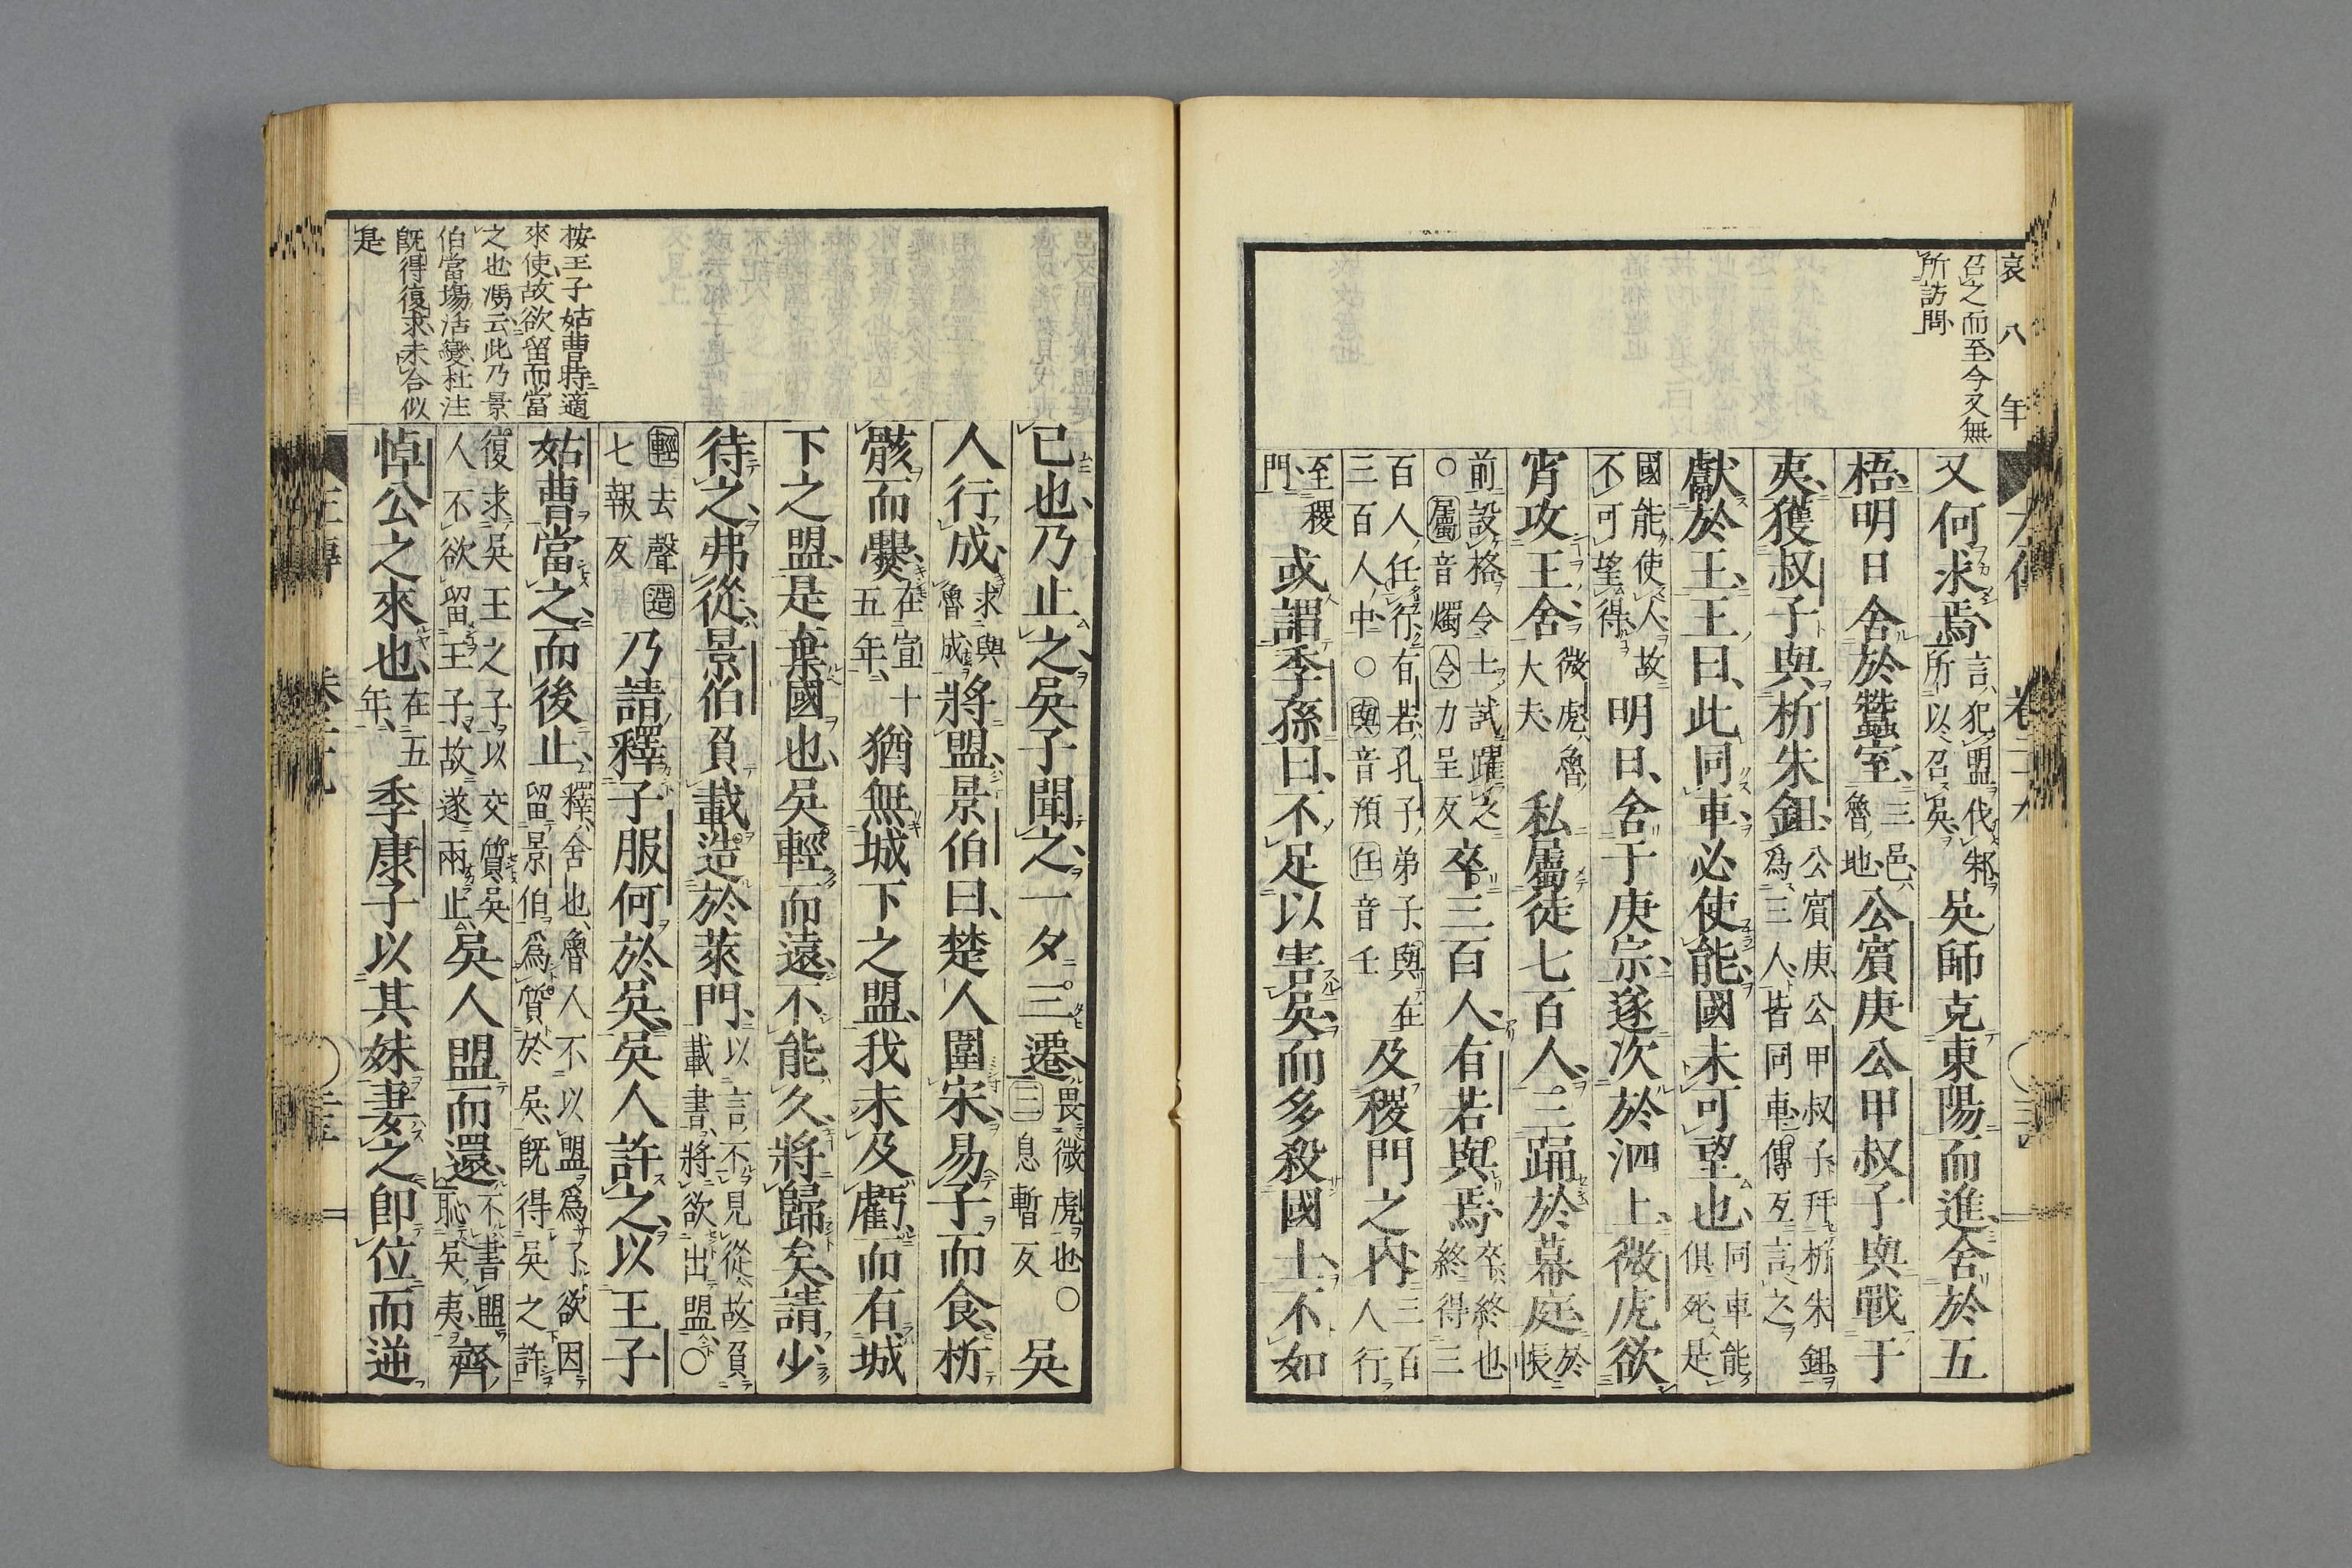 哀八年
召之而至今又無
所訪問
又何求焉言犯盟伐邾所以召吳吳師克東陽而進舍於五
梧明日舍於蠶室三邑魯地公賓庚公甲叔子與戰于
夷獲叔子與析朱鉏公賓庚公甲叔子幷析朱鉏爲三人皆同車傳互言之
獻於王王曰此同車必使能國未可望也同車能俱死是
國能使人故不可望得明日舍于庚宗遂次於泗上微虎欲
宵攻王舍微虎魯大夫私屬徒七百人三踊於幕庭於帳
前設格令士試躍之○屬音燭令力呈反卒三百人有若與焉卒終也終得三
百人任行有若孔子弟子與在三百人中○與音預任音壬及稷門之內三百人行
至稷門或謂季孫曰不足以害吳而多殺國士不如
已也乃止之吳子聞之一夕三遷畏微虎也○三息暫反吳
人行成求與魯成將盟景伯曰楚人圍宋易子而食析
骸而爨在宣十五年猶無城下之盟我未及虧而有城
下之盟是棄國也吳輕而遠不能久將歸矣請少
待之弗從景伯負載造於萊門以言不見從故負載書將欲出盟○
輕去聲造七報反乃請釋子服何於吳吳人許之以王子
姑曹當之而後止釋舍也魯人不以盟爲了欲因留景伯爲質於吳旣得吳之許
復求吳王之子以交質吳人不欲留王子故遂兩止吳人盟而還不書盟恥吳夷齊
悼公之來也在五年季康子以其妹妻之卽位而逆
按王子姑曹特適
來使故欲留而當
之也馮云此乃景
伯當場活變杜注
旣得復求未合似
是